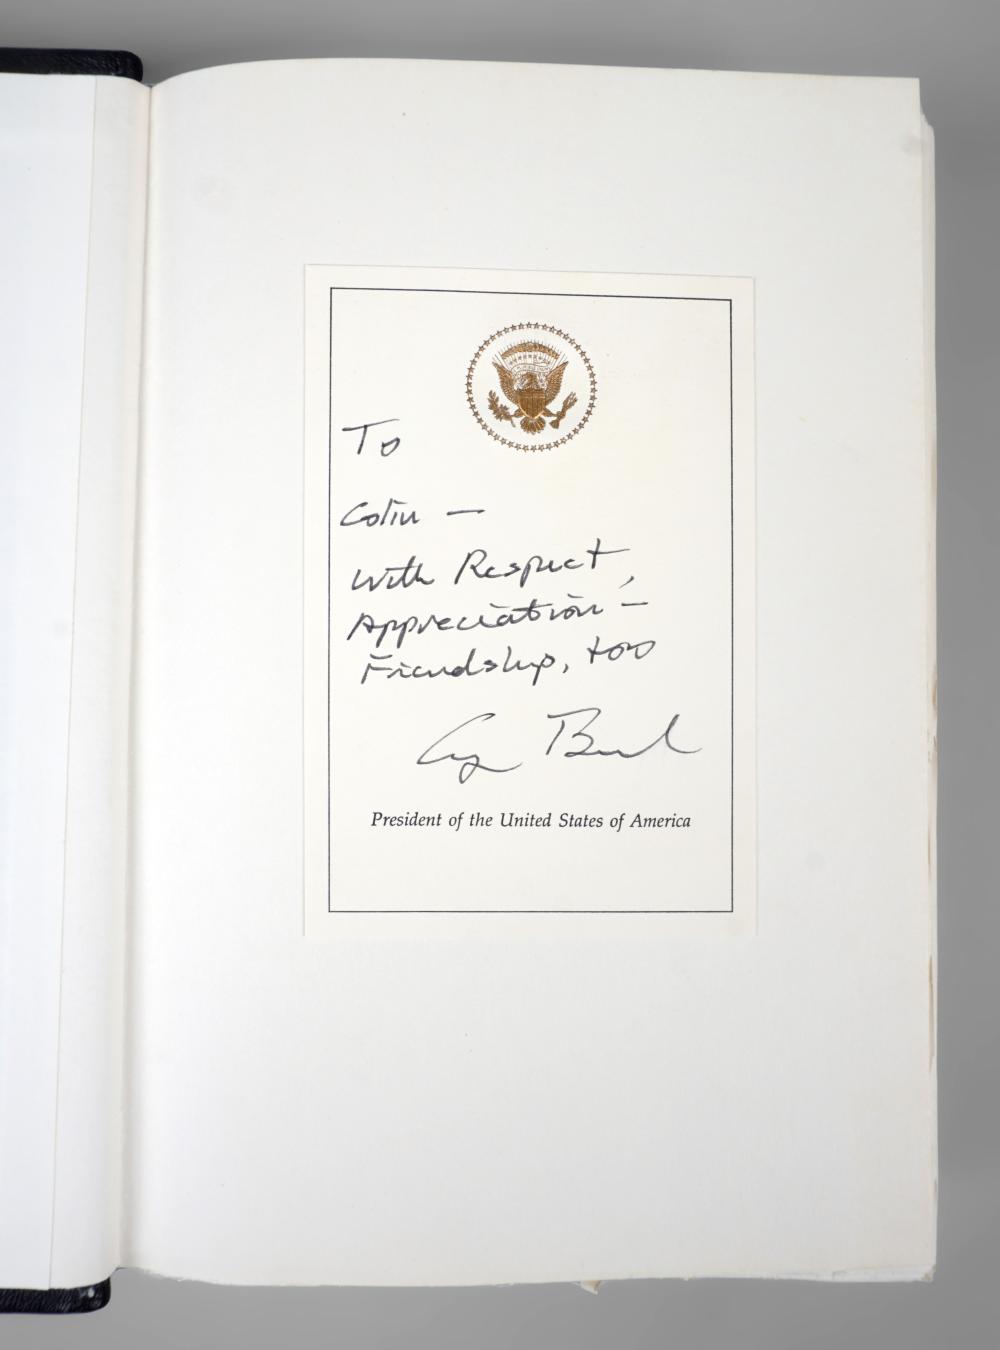 To
Colin —
with Respect,
Appreciation —
Friendship, too
G Bush
President of the United States of America